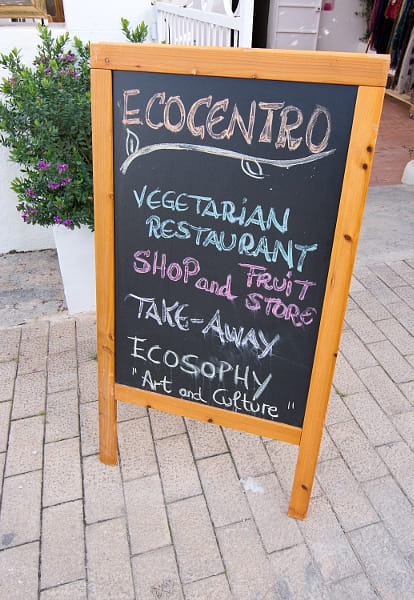 ECOCENTRO
VEGETARIAN
RESTAURANT
SHOP and FRUIT
STORE
TAKE-AWAY
ECOSOPHY
"Art and Culture"